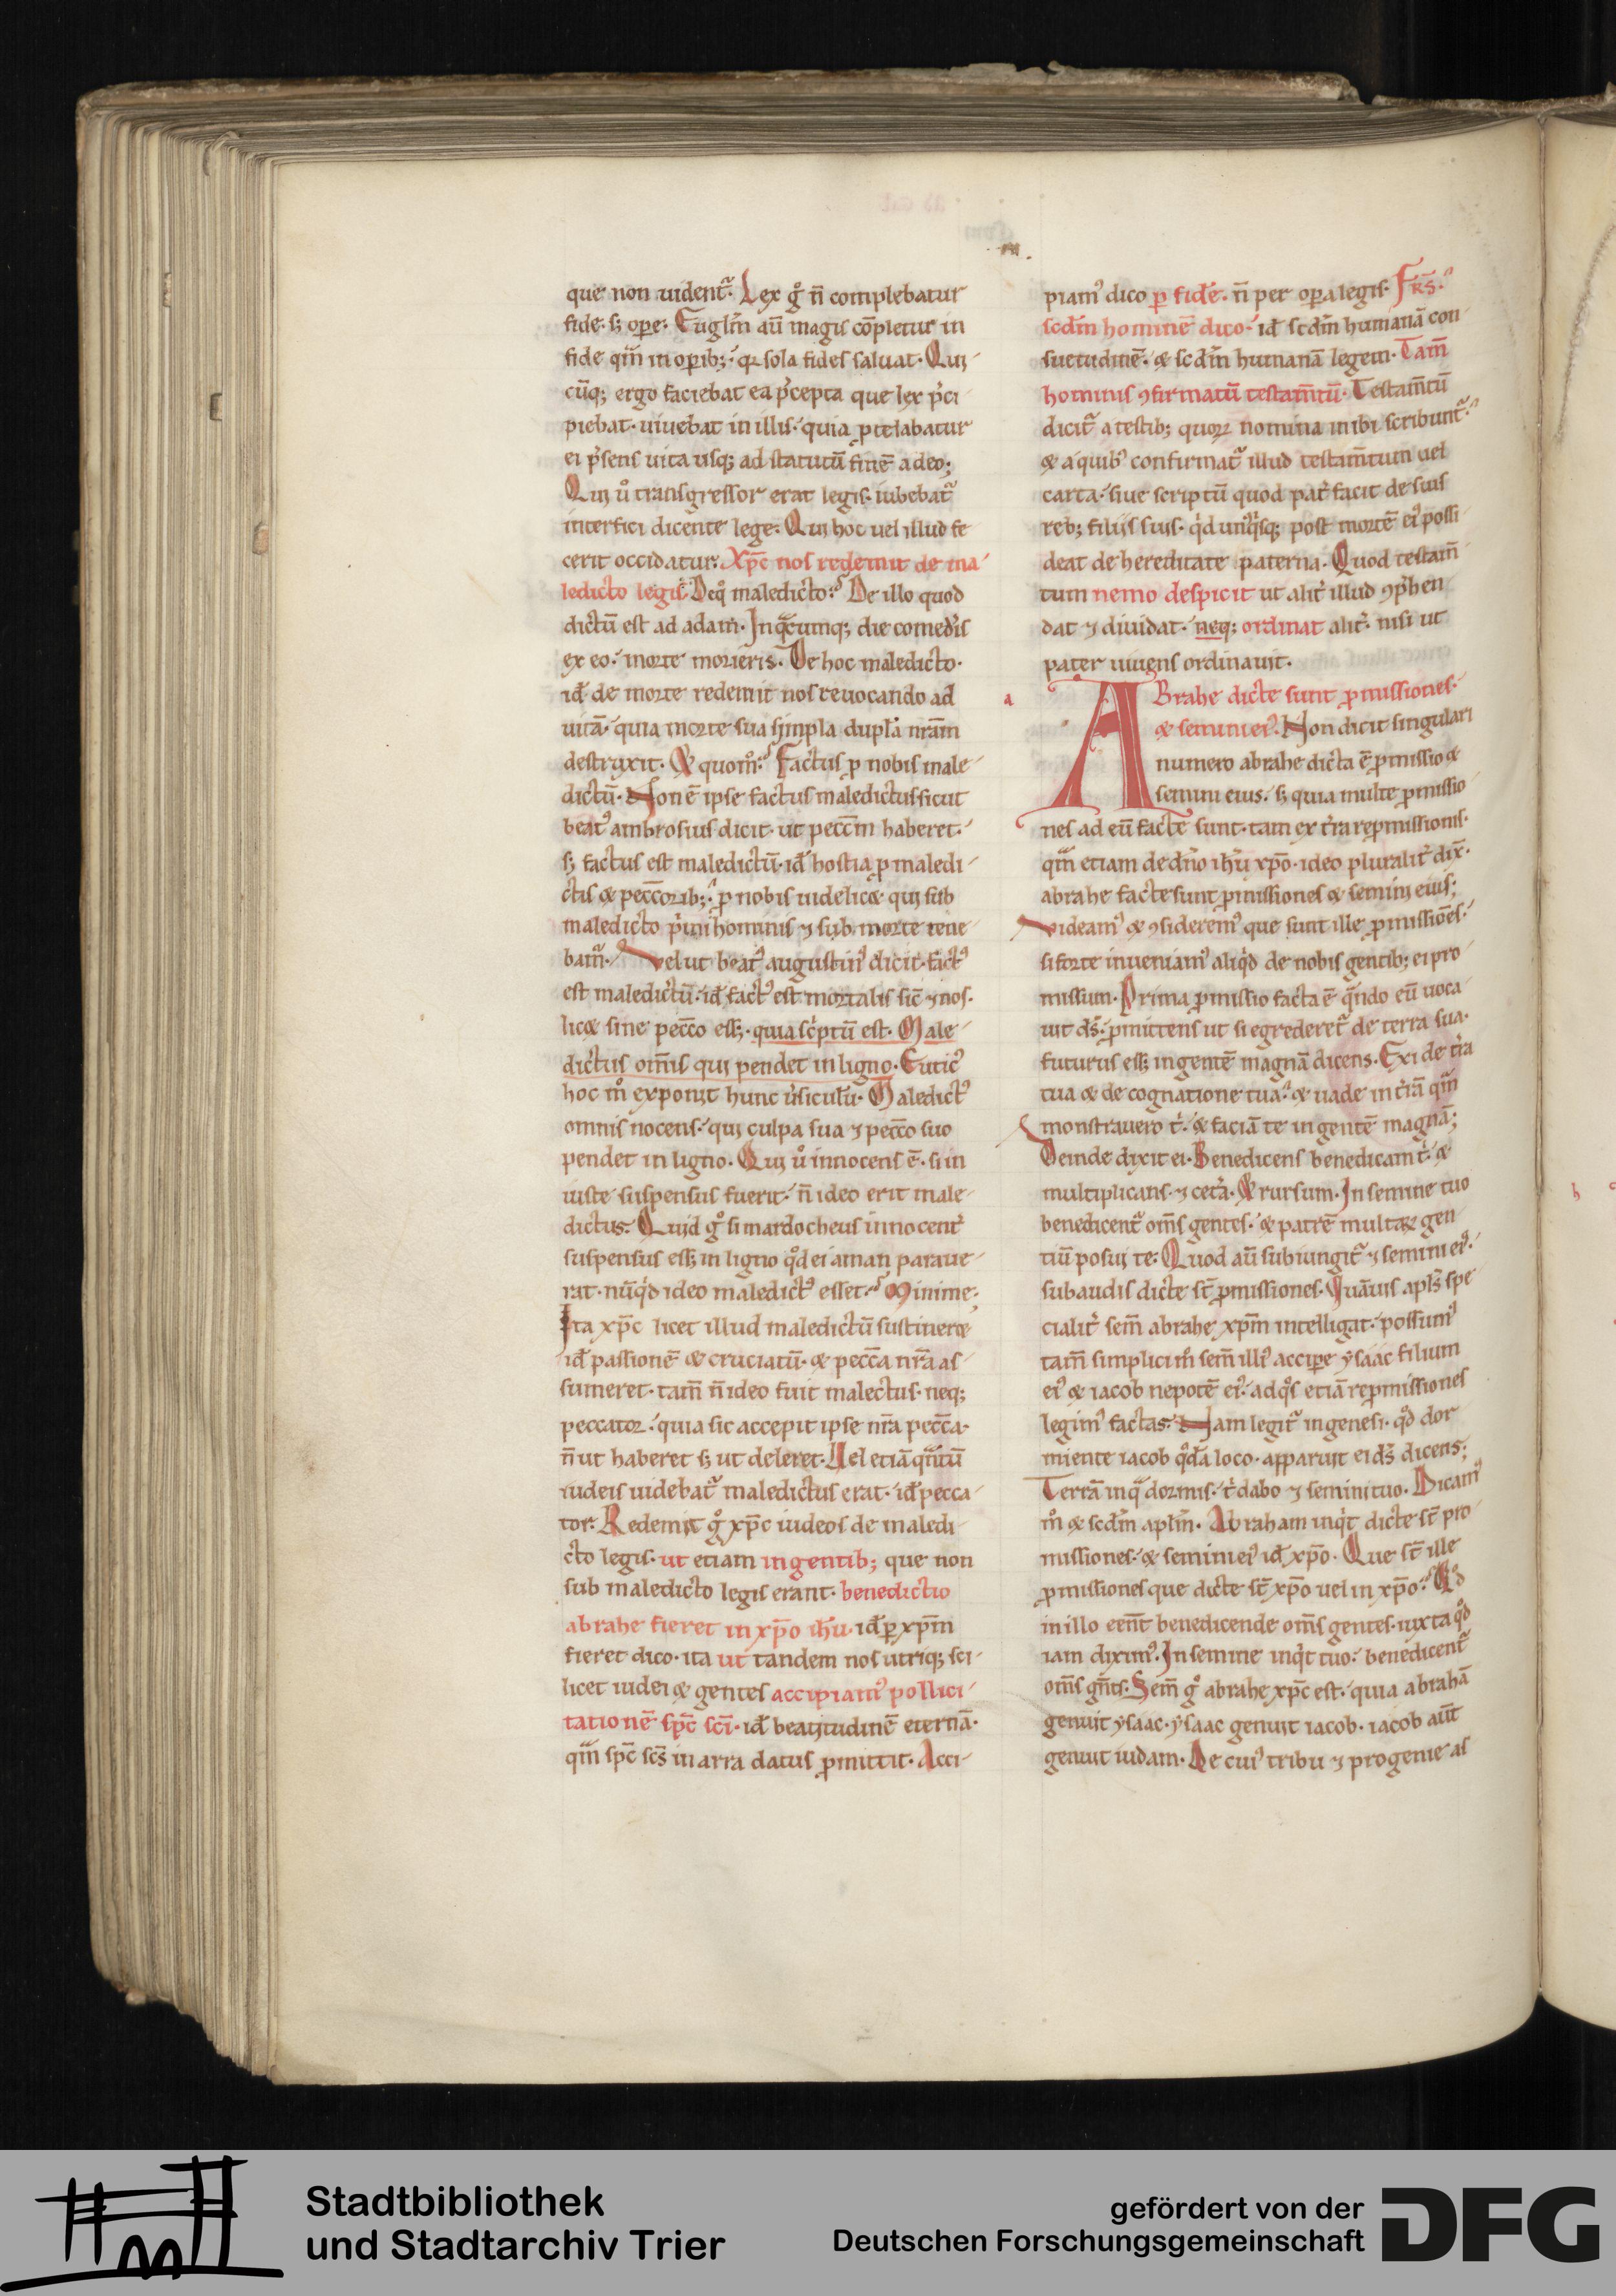 que non uident᷑. Lex gͦ n̄ complebatur
fide. sꝫ oꝑe. Euglm̄ aū magis cōpletur in
fide qᷓm in oꝑibꝫ. qꝛ sola fides saluat. Qui
cūqꝫ ergo faciebat ea p̓cepta que lex p̓ci
piebat. uiuebat in illis. quia ꝓtelabatur
ei p̓sens uita usqꝫ ad statutū finē a deo;
Qui uͦ transgressor erat legis. iubebat᷑
interfici dicente lege. Qui hoc uel illud fe
cerit occidatur. Xp̄c nos redemit de ma
ledicto legis. De qͦ maledicto? De illo quod
dictū est ad adam. In qᷓcumqꝫ die comed̓is
ex eo. morte morieris. De hoc maledicto.
id̄ de morte redemit nos reuocando ad
uitā. quia morte sua simpla dupla nr̄am
destruxit. Et quom̊? Factus ꝓ nobis male
dictū. Non ē ipse factus maledictus sicut
beatꝰ ambrosius dicit. ut pecc̄m haberet.
sꝫ factus est maledictū. id̄ hostia ꝓ maledi
ctis et pecc̄oribꝫ. ꝓ nobis uidelicet qui sub
maledicto p̓mi hominis ⁊ sub morte tene
bam᷑. Vel ut beatꝰ augustinꝰ dicit. factꝰ
est maledictū. id̄ factꝰ est mortalis sic̄ ⁊ nos.
licet sine pecc̄o eēt. quia sc̓ptū est. Male
dictus om̄is qui pendet in ligno. Euticꝰ
hoc m̊ exponit hunc ū̓siculū. Maledictꝰ
omnis nocens. qui culpa sua ⁊ pecc̄o suo
pendet in ligno. Qui uͦ innocens ē. si in
iuste suspensus fuerit. n̄ ideo erit male
dictus. Quid gͦ si mardocheus innocent̓
suspensus eēt in ligno qͦd ei aman paraue
rat. nūqͥd ideo maledictꝰ esset? Minime.
Ita xp̄c licet illud maledictū sustineret
id̄ passionē et cruciatū. et pecc̄a nr̄a as
sumeret. tam̄ n̄ ideo fuit malectus. neqꝫ
peccator. quia sic accepit ipse nr̄a pecc̄a.
n̄ ut haberet sꝫ ut deleret. Vel etiā qᷓntū
iudeis uidebat᷑ maledictus erat. id̄ pecca
tor. Redemit gͦ xp̄c iudeos de maledi
cto legis. ut etiam in gentibꝫ que non
sub maledicto legis erant. benedictio
abrahe fieret in xp̄o ih̄u. id̄ ꝑ xp̄m
fieret dico. ita ut tandem nos utriqꝫ sci
licet iudei et gentes accipiamꝰ pollici
tationē sp̄c sc̄i. id̄ beatitudinē eternā.
qᷓm sp̄c sc̄s in arra datus ꝓmittit. Acci
piamꝰ dico ꝑ fidē. n̄ per oꝑa legis. Frs̄.
scdm̄ hominē dico. id̄ scdm̄ humanā con
suetudinē. et scdm̄ humanā legem. Tam̄
hominis ꝯfirmatū testam̄tū. Testam̄tū
dicit᷑ a testibꝫ quoꝝ nomina in ibi scribunt᷑.
et a quibꝰ confirmat᷑ illud testam̄tum uel
carta. siue scriptū quod pat̓ facit de suis
rebꝫ filiis suis. qͥd unqͥsqꝫ post mortē eiꝰ possi
deat de hereditate paterna. Quod testam̄
tum nemo despicit ut alit̓ illud ꝯp̓hen
dat ⁊ diuidat. neqꝫ ordinat alit̓. nisi ut
pater uiuens ordinauit.
a
ABrahe dicte sunt ꝓmissiones.
et semini eiꝰ. Non dicit singulari
numero abrahe dicta ē ꝓmissio et
semini eius. sꝫ quia multe ꝓmissio
nes ad eū facte sunt. tam ex t̓ra reꝓmissionis.
qᷓm etiam de dn̄o ih̄u xp̄o. ideo pluralit̓ dix̄.
abrahe facte sunt ꝓmissiones et semini eius;
Videamꝰ et ꝯsideremꝰ que sunt ille ꝓmissiōes.
si forte inueniamꝰ aliqͥd de nobis gentibꝫ ei pro
missum. Prima ꝓmissio facta ē qᷓndo eū uoca
uit ds̄. ꝓmittens ut si egrederet᷑ de terra sua.
futurus eēt in gentē magnā dicens. Exi de t̓ra
tua et de cognatione tua. et uade in t̓rā qᷓm
monstrauero t̓. et faciā te in gentē magnā;
Deinde dixit ei. Benedicens benedicam t̓. et
multiplicans. ⁊ cet̓a. Et rursum. In semine tuo
benedicent᷑ om̄s gentes. et patrē multaꝝ gen
tiū posui te. Quod aū subiungit᷑ ⁊ semini eiꝰ.
subaudis dicte st̄ ꝓmissiones. Quāuis apl̄s spe
cialit̓ sem̄ abrahe xp̄m intelligat. possumꝰ
tam̄ simplicit̓ sem̄ illiꝰ accipe ysaac filium
eiꝰ et iacob nepotē eiꝰ. ad qͦs etiā reꝓmissiones
legimꝰ factas. Nam legit᷑ in genesi. qͦd dor
miente iacob qͦdā loco. apparuit ei ds̄ dicens;
Terrā in qᷓ dormis. t̓ dabo ⁊ semini tuo. Dicamꝰ
m̊ et scdm̄ aplm̄. Abraham inqͥt dicte st̄ pro
missiones. et semini eiꝰ id̄ xp̄o. Que st̄ ille
ꝓmissiones que dicte st̄ xp̄o uel in xp̄o? Qͦd
in illo eēnt benedicende om̄s gentes. iuxta qͦd
iam diximꝰ. In semine inqͥt tuo. benedicent᷑
om̄s gn̄tes. Sem̄ gͦ abrahe xp̄c est. quia abrahā
genuit ysaac. ysaac genuit iacob. iacob aūt
genuit iudam. De cuiꝰ tribu ⁊ progenie as
Stadtbibliothek
und Stadtarchiv Trier
gefördert von der
Deutschen Forschungsgemeinschaft
DFG